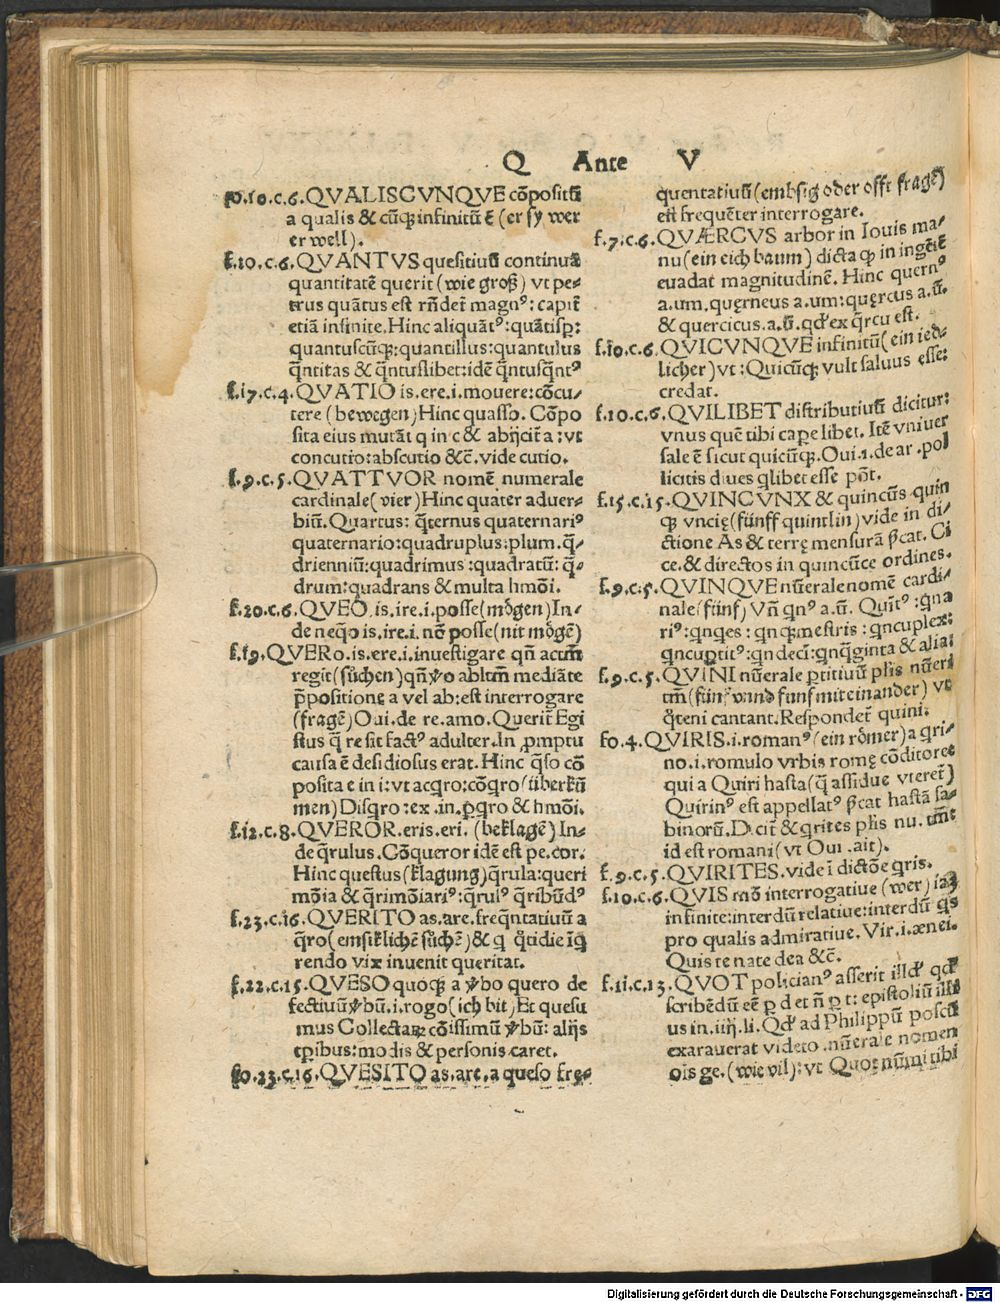 Q Ante V
fo.10.c.6.QVALISCVNQVE cōpositū
a qualis & cūqꝫ infinitū ē (er sy wer
er well).
f.10.c.6.QVANTVS quesitiuū continuā
quantitatē querit (wie groß) vt pe⸗
trus quātus est rñdet᷑ magnꝰ: capit᷑
etiā infinite. Hinc aliquātꝰ: quātispꝫ:
quantuscūqꝫ: quantillus: quantulus
q̄ntitas & q̄ntuslibet: idē q̄ntusq̄ntꝰ
f.17.c.4.QVATIO is.ere.i.mouere: cōcu⸗
tere (bewegen) Hinc quasso. Cōpo
sita eius mutāt q in c & abijcit᷑ a: vt
concutio: abscutio &c̄. vide cutio.
f.9.c.5.QVATTVOR nomē numerale
cardinale (vier) Hinc quater aduer⸗
biū. Quartus: q̄ternus quaternariꝰ
quaternario: quadruplus: plum. q̄⸗
drienniū: quadrimus: quadratū: q̄⸗
drum: quadrans & multa hmōi.
f.20.c.6.QVEO.is.ire.i.posse (mögen) In⸗
de neq̄o is.ire.i.nō posse (nit mögē)
f.19.QVERo.is.ere.i.inuestigare qñ actm̄
regit (sůchen) qñ ꝟo abltm̄ mediāte
p̄positione a vel ab: est interrogare
(fragē) Oui. de re. amo. Querit᷑ Egi
stus q̄ re sit factꝰ adulter. In ꝓmptu
causa ē desidiosus erat. Hinc q̄so cō
posita e in i: vt acq̄ro: cōq̄ro (überkū
men) Disq̄ro: ex .in. ꝑq̄ro & hmōi.
f.12.c.8.QVEROR.eris.eri. (beklagē) In⸗
de q̄rulus. Cōqueror idē est pe.cor.
Hinc questus (klagung) q̄rula: queri
mōia & q̄rimōiariꝰ: q̄rulꝰ q̄ribūdꝰ
f.23.c.16.QVERITO as.are.freq̄ntatiuū a
q̄ro (emsiklichē sůchē) & q q̄tidie īq̄
rendo vix inuenit queritat.
f.22.c.15.QVESO quoqꝫ a ꝟbo quero de
fectiuū ꝟbū.i.rogo (ich bit) Et quesu
mus Collectaꝝ cōissimū ꝟbū: alijs
tꝑibus: modis & personis caret.
fo.23.c.16.QVESITO as.are.a queso fre⸗
quentatiuū (embsig oder offt fragē)
est frequēter interrogare.
f.7.c.6.QVÆRCVS arbor in Iouis ma⸗
nu (ein eich baum) dicta qꝫ in ingētē
euadat magnitudinē. Hinc quernꝰ
a.um. querneus a.um: quercus a.ū.
& quercicus.a.ū. qd̕ ex q̄rcu est.
f.10.c.6.QVICVNQVE infinitū (ein ied⸗
licher) vt: Quicūqꝫ vult saluus esse:
credat.
f.10.c.6.QVILIBET distributiuū dicitur:
vnus quē tibi capelibet. Itē vniuer
sale ē sicut quicūqꝫ. Oui.1.de ar. pol
licitis diues qlibet esse pōt.
f.15.c.15.QVINCVNX & quincūs quin
qꝫ vncię (fünff quintlin) vide in di⸗
ctione As & terrę mensurā p̄cat. Ci
ce.& directos in quincūce ordines.
f.9.c.5.QVINQVE nūerale nomē cardi⸗
nale (fünf) Vñ qnꝰ a.ū. Quīt᷑ꝰ: qna
riꝰ: qnqes: qnqꝫmestris: qncuplex:
qncuptit᷑ꝰ: qn deci: qnq̄ginta & alia:
f.9.c.5.QVINI nūerale ꝑtitiuū plis nūeri
tm̄ (fünf vnnd funf mit einander) vt
q̄teni cantant. Respondet᷑ quini:
fo.4.QVIRIS.i.romanꝰ (ein römer) a qri⸗
no.i.romulo vrbis romę cōditore:
qui a Quiri hasta (q̄ assidue vteret᷑)
Quirinꝰ est appellatꝰ p̄cat hastā sa⸗
binorū. Dicit & qrites plis nu. tm̄:
id est romani (vt Oui .ait).
f.9.c.5.QVIRITES. vide ī dictōe qris.
f.10.c.6.QVIS mō interrogatiue (wer) iā
infinite: interdū relatiue: interdū qs
pro qualis admiratiue. Vir.i.ænei.
Quis te nate dea &c̄.
f.11.c.13.QVOT policianꝰ asserit illd̕ qd̕
scribēdū eē p d et ñ p t: epistoliū illi
us in.iiij.li. Qd̕ ad Philippū poscū
exarauerat videto .nūerale nomen
ois ge. (wie vil): vt Quot nūmi tibi
Digitalisierung gefördert durch die Deutsche Forschungsgemeinschaft - DFG